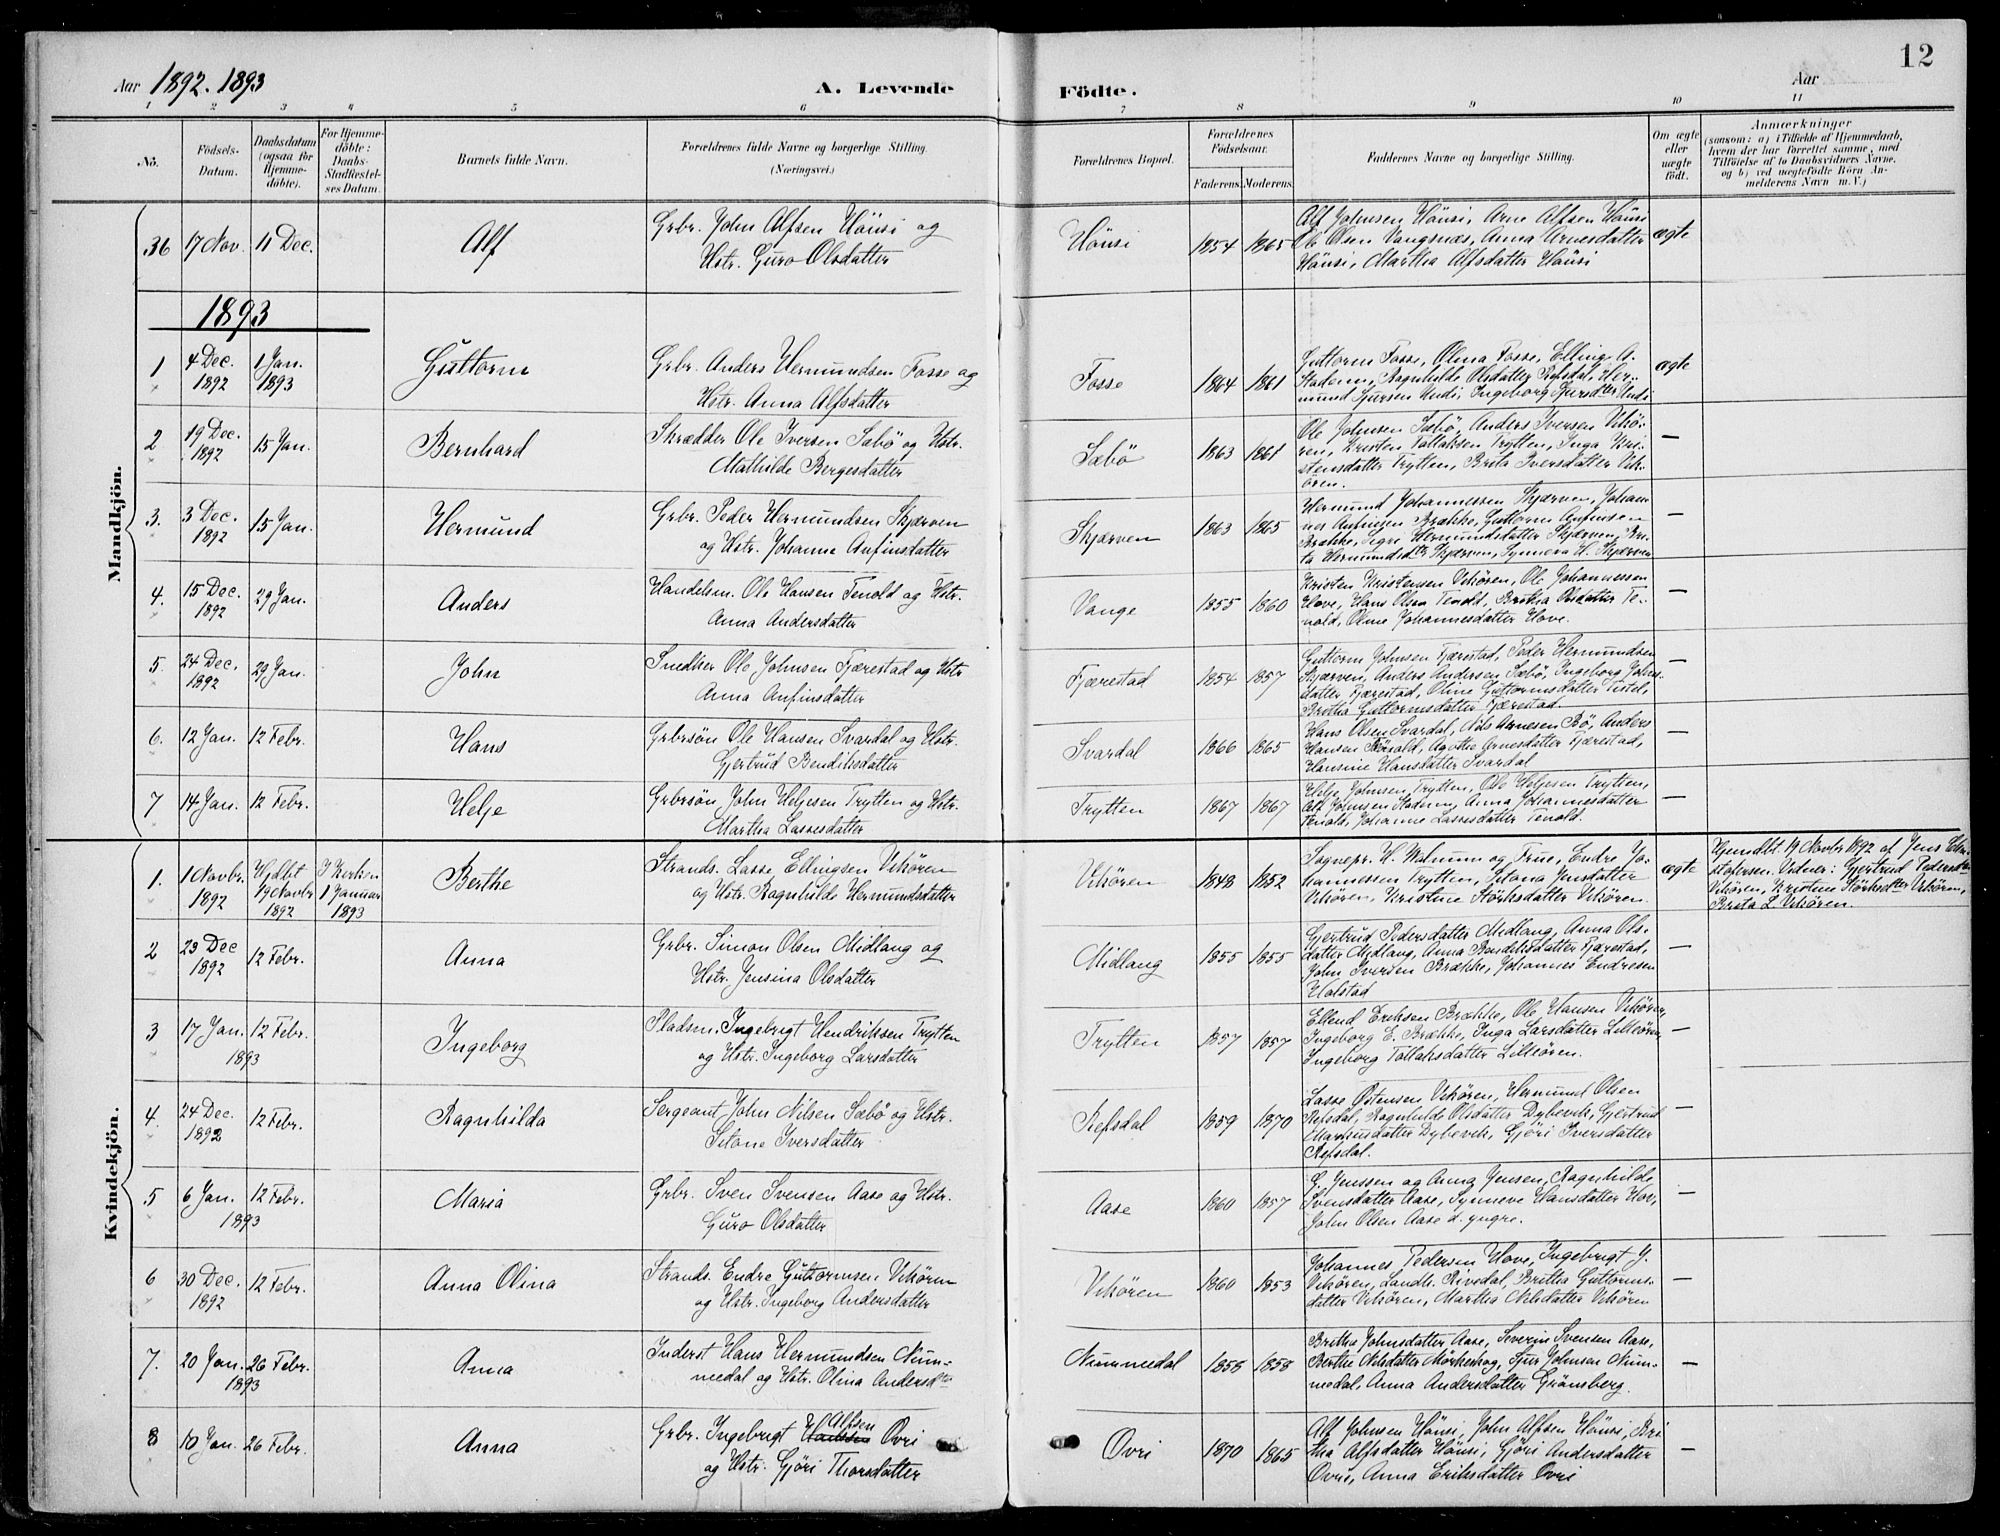 12
Aar 1892. 1893
A. Levende Födte.
Aar
1 2 3 4 5 6 7 8 9 10 11
No.
Födsels-Datum.
Daabsdatum (ogsaa for Hjemme-döbte).
For Hjemme-döbte: Daabs-Stadfæstel-ses Datum.
Barnets fulde Navn.
Forældrenes fulde Navne og borgerlige Stilling. (Næringsvei.)
Forældrenes Bopæl.
Forældrenes Födselsaar.
Faderens. Moderens.
Faddernes Navne og borgerlige Stilling.
Om ægte eller uægte födt.
Anmærkninger
(saasom: a) i Tilfælde af Hjemmedaab, hvem der har forrettet samme, med Tilföielse af to Daabsvidners Navne, og b) ved uægtefödte Börn An-melderens Navn m. V.)
Mandkjön.
36 17 Nov. 11 Dec. Alf
Grbr. John Alfsen Hönsi og
Hstr. Guro Olsdatter
Hönsi 1854 1865
Alf Johnsen Hönsi, Arne Alfsen Hönsi
Ole Olsen Vangsnæs, Anna Arnesdatter
Hönsi, Martha Alfsdatter Hönsi
ægte
1893
1 4 Dec. 1892 1 Jan. 1893 Guttorm
Grbr. Anders Hermundsen Fosse og
Hstr. Anna Alfsdatter
Fosse 1864 1861
Guttorm Fosse, Olina Fosse, Elling A.
Stadem, Ragnhilde Olsdatter Refsdal, Her-
mund Sjursen Undi, Ingeborg Sjursdtter Undi
ægte
2 19 Dec. 1892 15 Jan. Bernhard
Skrædder Ole Iversen Sæbö og Hstr.
Mathilde Bergesdatter
Sæbö 1863 1861
Ole Johnsen Sæbö, Anders Iversen Vikö-
ren, Kristen Tollaksen Trytten, Inga Kri-
stensdatter Trytten, Brita Iversdatter Vik-
ören.
—
3. 3 Dec. 1892 15 Jan. Hermund
Grbr. Peder Hermundsen Skjærven
og Hstr. Johanna Anfinsdatter
Skjærven 1863 1865
Hermund Johannessen Skjærven, Johan-
nes Anfinsen Brække, Guttorm Anfinsen
Brække, Sigri Hermundsdatter Skjærven, Bri-
ta Hermundsdtr Skjærven, Synneva H. Skjærven
—
4. 15 Dec. 1892 29 Jan. Anders
Handelsm. Ole Hansen Tenold og Hstr.
Anna Andersdatter
Vange 1855 1860
Kristen Kristensen Vikören, Ole Johannessen
Hove, Hans Olsen Tenold, Britha Olsdatter Te-
nold, Oline Johannesdatter Hove.
—
5 24 Dec. 1892 29 Jan. John
Snedker Ole Johnsen Fjærestad og Hstr
Anna Anfinsdatter
Fjærestad 1854 1857
Guttorm Johnsen Fjærestad, Peder Hermundsen
Skjærven, Anders Andersen Sæbö, Ingeborg Johns-
datter Fjærestad, Oline Guttormsdatter Tistel,
Britha Guttormsdatter Fjærestad.
—
6. 12 Jan. 12 Febr. Hans
Grbrsön Ole Hansen Svardal og Hstr.
Gjertrud Bendiksdatter
Svardal 1866 1865
Hans Olsen Svardal, Nils Arnesen Bö, Anders
Hansen Tenold, Agothe Arnesdatter Fjærestad,
Hansine Hansdatter Svardal
—
7 14 Jan. 12 Febr. Helje
Grbrsön John Heljesen Trytten og Hstr.
Martha Lassesdatter
Trytten 1867 1867
Helje Johnsen Trytten, Ole Heljesen Trytten,
Alf Johnsen Stadem, Anna Johannesdatter
Tenold, Johanne Lassesdatter Tenold.
—
Kvindekjön.
1. 1 Novbr. 1892 Hjdbt 19 Novbr 1892 I Kirken 1 Januar 1893 Berthe
Strands. Lasse Ellingsen Vikören
og Hstr. Ragnhilde Hermundsdatter
Vikören 1848 1852
Sognepr. H. Walnum og Frue, Endre Jo-
hannessen Trytten, Johana Jensdatter
Vikören, Kristine Störksdatter Vikören.
ægte
Hjemdbt 19 Novbr 1892 af Jens
Vidner: Gjertrud Pedersdtr
Vikören, Kristine Störksdtter Vikören,
Brita L. Vikören.
2 23 Dec 1892 12 Febr. Anna
Grbr. Simon Olsen Midlang og
Hstr. Jensina Olsdatter
Midlang 1855 1855
Gjertrud Pedersdatter Midlang, Anna Ols-
datter Midlang, Anna Bendiksdatter Fjærestad,
John Iversen Brække, Johannes Endresen
Halstad
—
3 17 Jan. 1893 12 Febr. Ingeborg
Pladsm. Ingebrigt Hendriksen Trytten
og Hstr. Ingeborg Larsdatter
Trytten 1857 1857
Ellend Eriksen Brække, Ole Hansen Vikören,
Ingeborg E. Brække, Inga Larsdatter Lilleören,
Ingeborg Tollaksdatter Lilleören.
—
4. 24 Dec. 1892 12 Febr. Ragnhilda
Sergeant John Nilsen Sæbö og Hstr.
Sitone Iversdatter
Refsdal 1859 1870
Lasse Östensen Vikören, Hermund Olsen
Refsdal, Ragnhilde Olsdatter Dybevik, Gjertrud
Markusdatter Dybevik, Gjöri Iversdatter
Refsdal.
—
5 6 Jan. 1893 12 Febr. Maria
Grbr. Sven Svensen Aase og Hstr.
Guro Olsdatter
Aase 1860 1857
G. Jenssen og Anna Jensen, Ragnhilde
Svensdatter Aase, Synneve Hansdatter Hov,
John Olsen Aase d. yngre.
—
6 30 Dec. 1892 12 Febr. Anna Olina
Strands. Endre Guttormsen Vikören
og Hstr. Ingeborg Andersdatter
Vikören 1860 1853
Johannes Pedersen Hove, Ingebrigt J.
Vikören, Landh. Rivedal, Britha Guttorms-
datter Vikören, Martha Nilsdatter Vikören
—
7. 20 Jan. 1893 26 Febr. Anna
Inderst Hans Hermundsen Num-
medal og Hstr. Olina Andersdtr
Nummedal 1858 1858
Britha Johnsdatter Aase, Severin Svensen Aase,
Berthe Nilsdatter Mörkeskog, Sjur Johnsen Num-
medal, Anna Andersdatter Grönsberg.
—
8 10 Jan. 26 Febr. Anna
Grbr. Ingebrigt Alfsen Ovri
og Hstr. Gjöri Thorsdatter
Ovri 1870 1865
Alf Johnsen Hönsi, John Alfsen Hönsi, Bri
tha Alfsdatter Hönsi, Gjöri Andersdatter
Ovri, Anna Eriksdatter Ovri
—